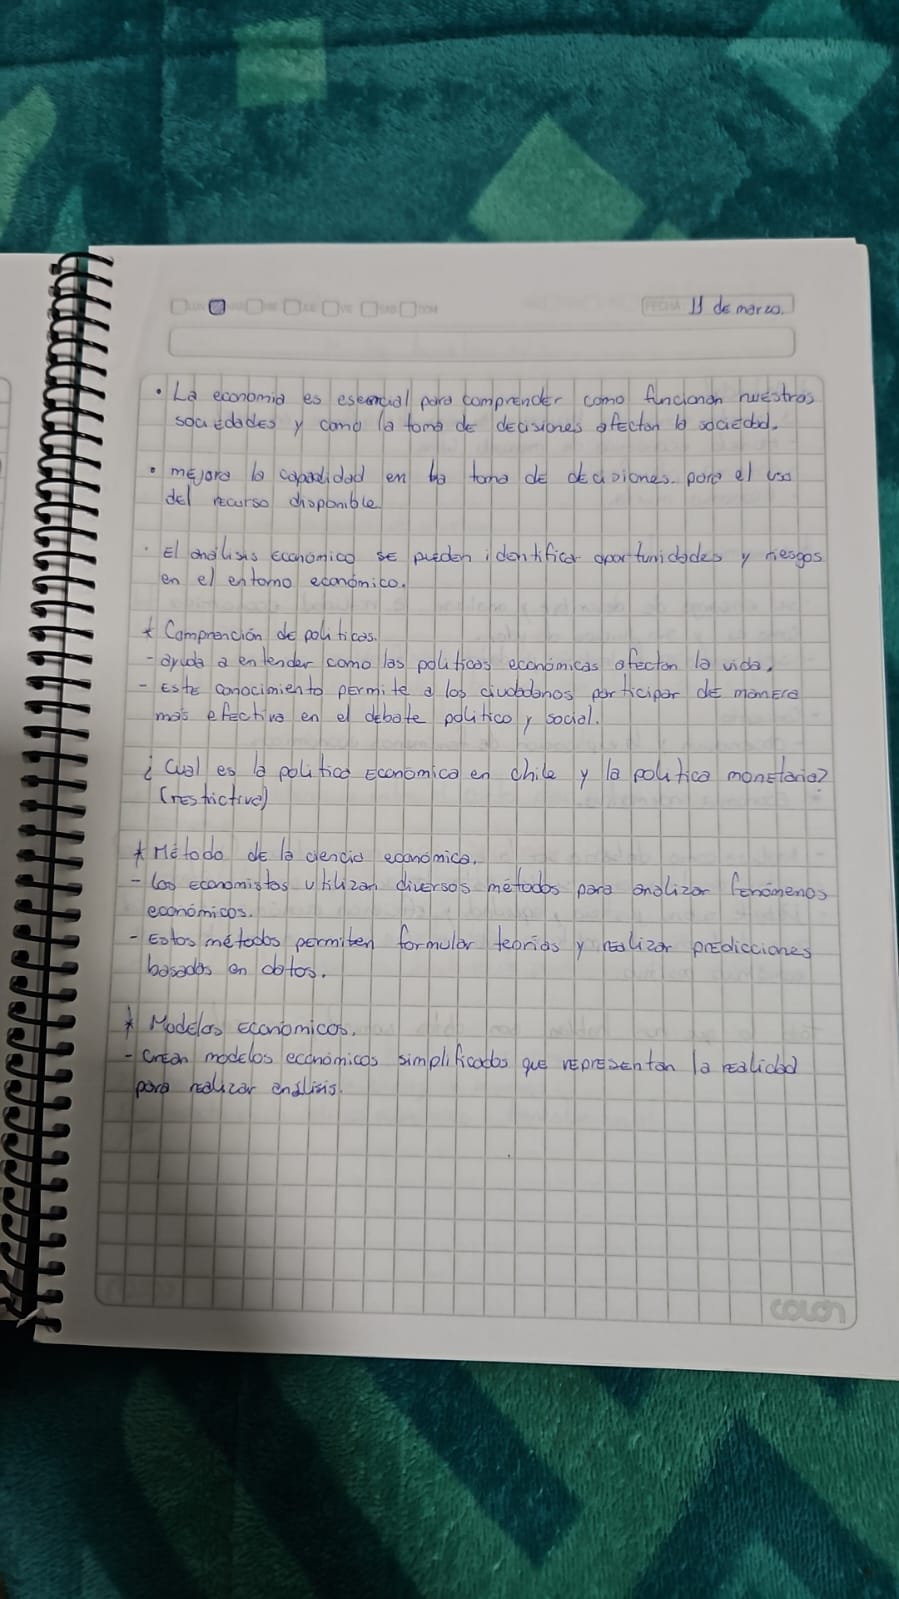 FECHA 11 de marzo.
• La economia es esencial para comprender como funcionan nuestras
sociedades y como la toma de decisiones afectan la sociedad.
• mejora la capacidad en la toma de decisiones para el uso
del recurso disponible
· El análisis económico se pueden identificar oportunidades y riesgos
en el entorno económico.
* Comprención de politicas.
- ayuda a entender como las politicas económicas afectan la vida.
- Este conocimiento permite a los ciudadanos participar de manera
más efectiva en el debate politico y social.
¿Cual es la politica económica en chile y la politica monetaria?
(restrictiva)
* Método de la ciencia económica.
- Los economistas utilizan diversos métodos para analizar fenómenos
económicos.
- Estos métodos permiten formular teorias y realizar predicciones
basadas en datos.
* Modelos económicos.
- Crean modelos económicos simplificados que representan la realidad
para realizar análisis.
colón